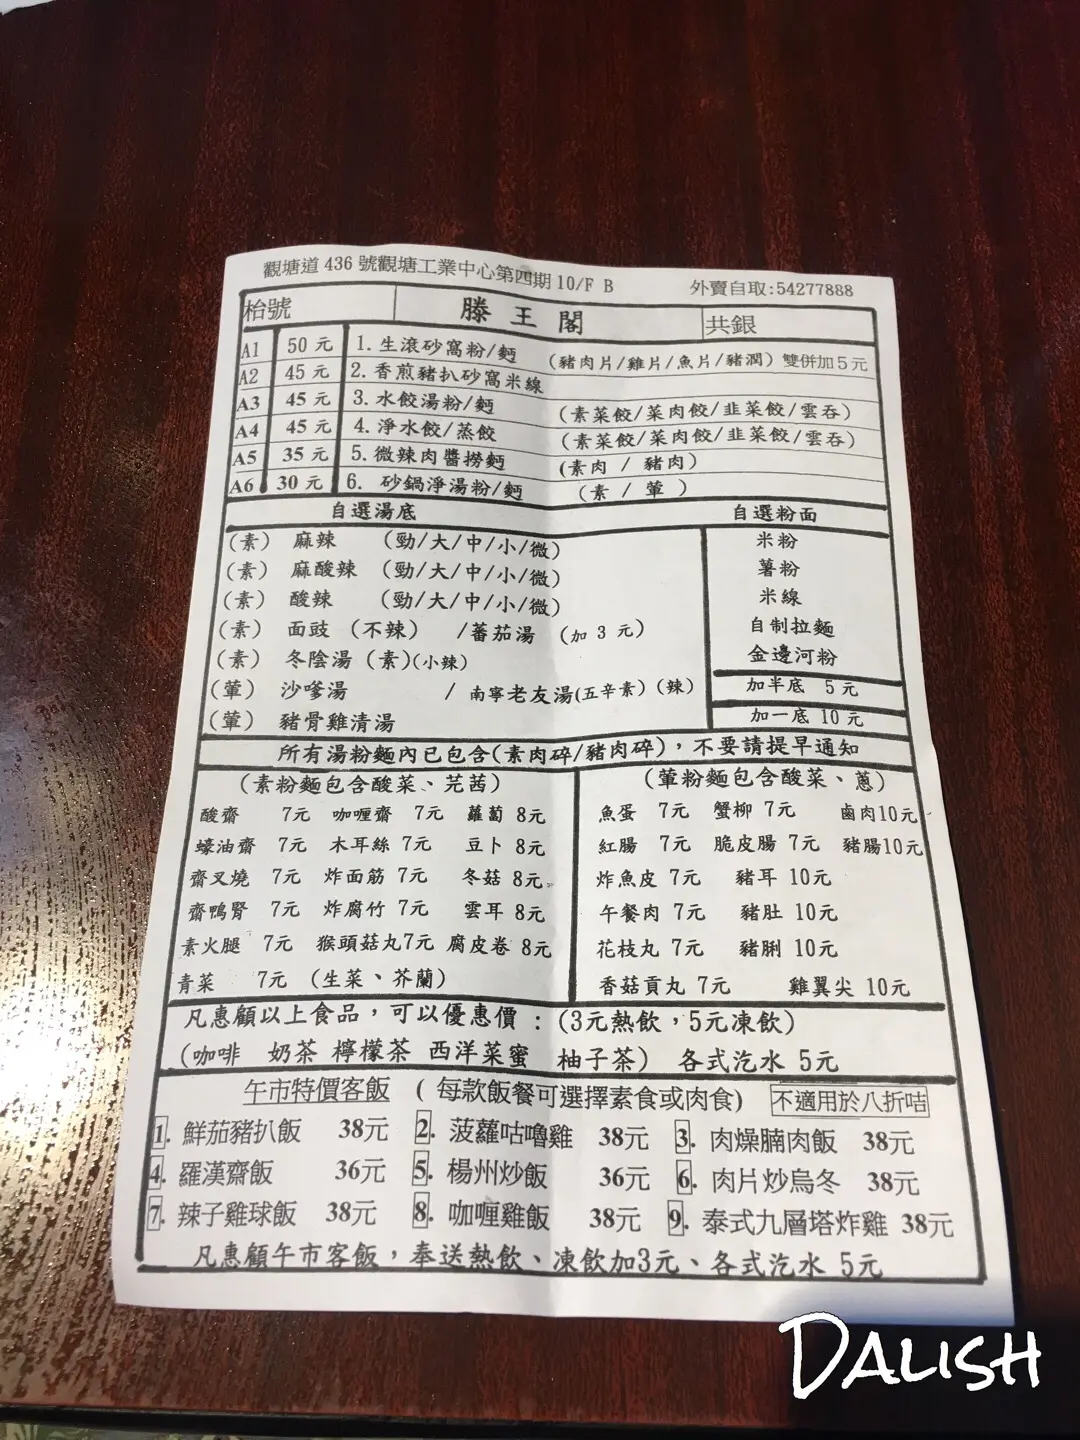 觀塘道 436 號觀塘工業中心第四期 10/F B 外賣自取:54277888
枱號 滕 王 閣 共銀
A1 50 元 1. 生滾砂窩粉/麵 (豬肉片/雞片/魚片/豬潤) 雙併加5元
A2 45 元 2. 香煎豬扒砂窩米線
A3 45 元 3. 水餃湯粉/麵 (素菜餃/菜肉餃/韭菜餃/雲吞)
A4 45 元 4. 淨水餃/蒸餃 (素菜餃/菜肉餃/韭菜餃/雲吞)
A5 35 元 5. 微辣肉醬撈麵 (素肉 / 豬肉)
A6 30 元 6. 砂鍋淨湯粉/麵 (素 / 葷 )
自選湯底 自選粉面
(素) 麻辣 (勁/大/中/小/微) 米粉
(素) 麻酸辣 (勁/大/中/小/微) 薯粉
(素) 酸辣 (勁/大/中/小/微) 米線
(素) 面豉 (不辣) /蕃茄湯 (加 3 元) 自制拉麵
(素) 冬陰湯 (素)(小辣) 金邊河粉
(葷) 沙嗲湯 / 南寧老友湯(五辛素)(辣) 加半底 5 元
(葷) 豬骨雞清湯 加一底 10 元
所有湯粉麵內已包含(素肉碎/豬肉碎)，不要請提早通知
(素粉麵包含酸菜、芫茜) (葷粉麵包含酸菜、蔥)
酸齋 7元 咖喱齋 7元 蘿蔔 8元 魚蛋 7元 蟹柳 7元 鹵肉10元
蠔油齋 7元 木耳絲 7元 豆卜 8元 紅腸 7元 脆皮腸 7元 豬腸10元
齋叉燒 7元 炸面筋 7元 冬菇 8元 炸魚皮 7元 豬耳 10元
齋鴨腎 7元 炸腐竹 7元 雲耳 8元 午餐肉 7元 豬肚 10元
素火腿 7元 猴頭菇丸7元 腐皮卷 8元 花枝丸 7元 豬脷 10元
青菜 7元 (生菜、芥蘭) 香菇貢丸 7元 雞翼尖 10元
凡惠顧以上食品，可以優惠價：(3元熱飲，5元凍飲)
(咖啡 奶茶 檸檬茶 西洋菜蜜 柚子茶) 各式汽水 5元
午市特價客飯 ( 每款飯餐可選擇素食或肉食) 不適用於八折咭
1. 鮮茄豬扒飯 38元 2. 菠蘿咕嚕雞 38元 3. 肉燥腩肉飯 38元
4. 羅漢齋飯 36元 5. 楊州炒飯 36元 6. 肉片炒烏冬 38元
7. 辣子雞球飯 38元 8. 咖喱雞飯 38元 9. 泰式九層塔炸雞 38元
凡惠顧午市客飯，奉送熱飲、凍飲加3元、各式汽水 5元
DALISH